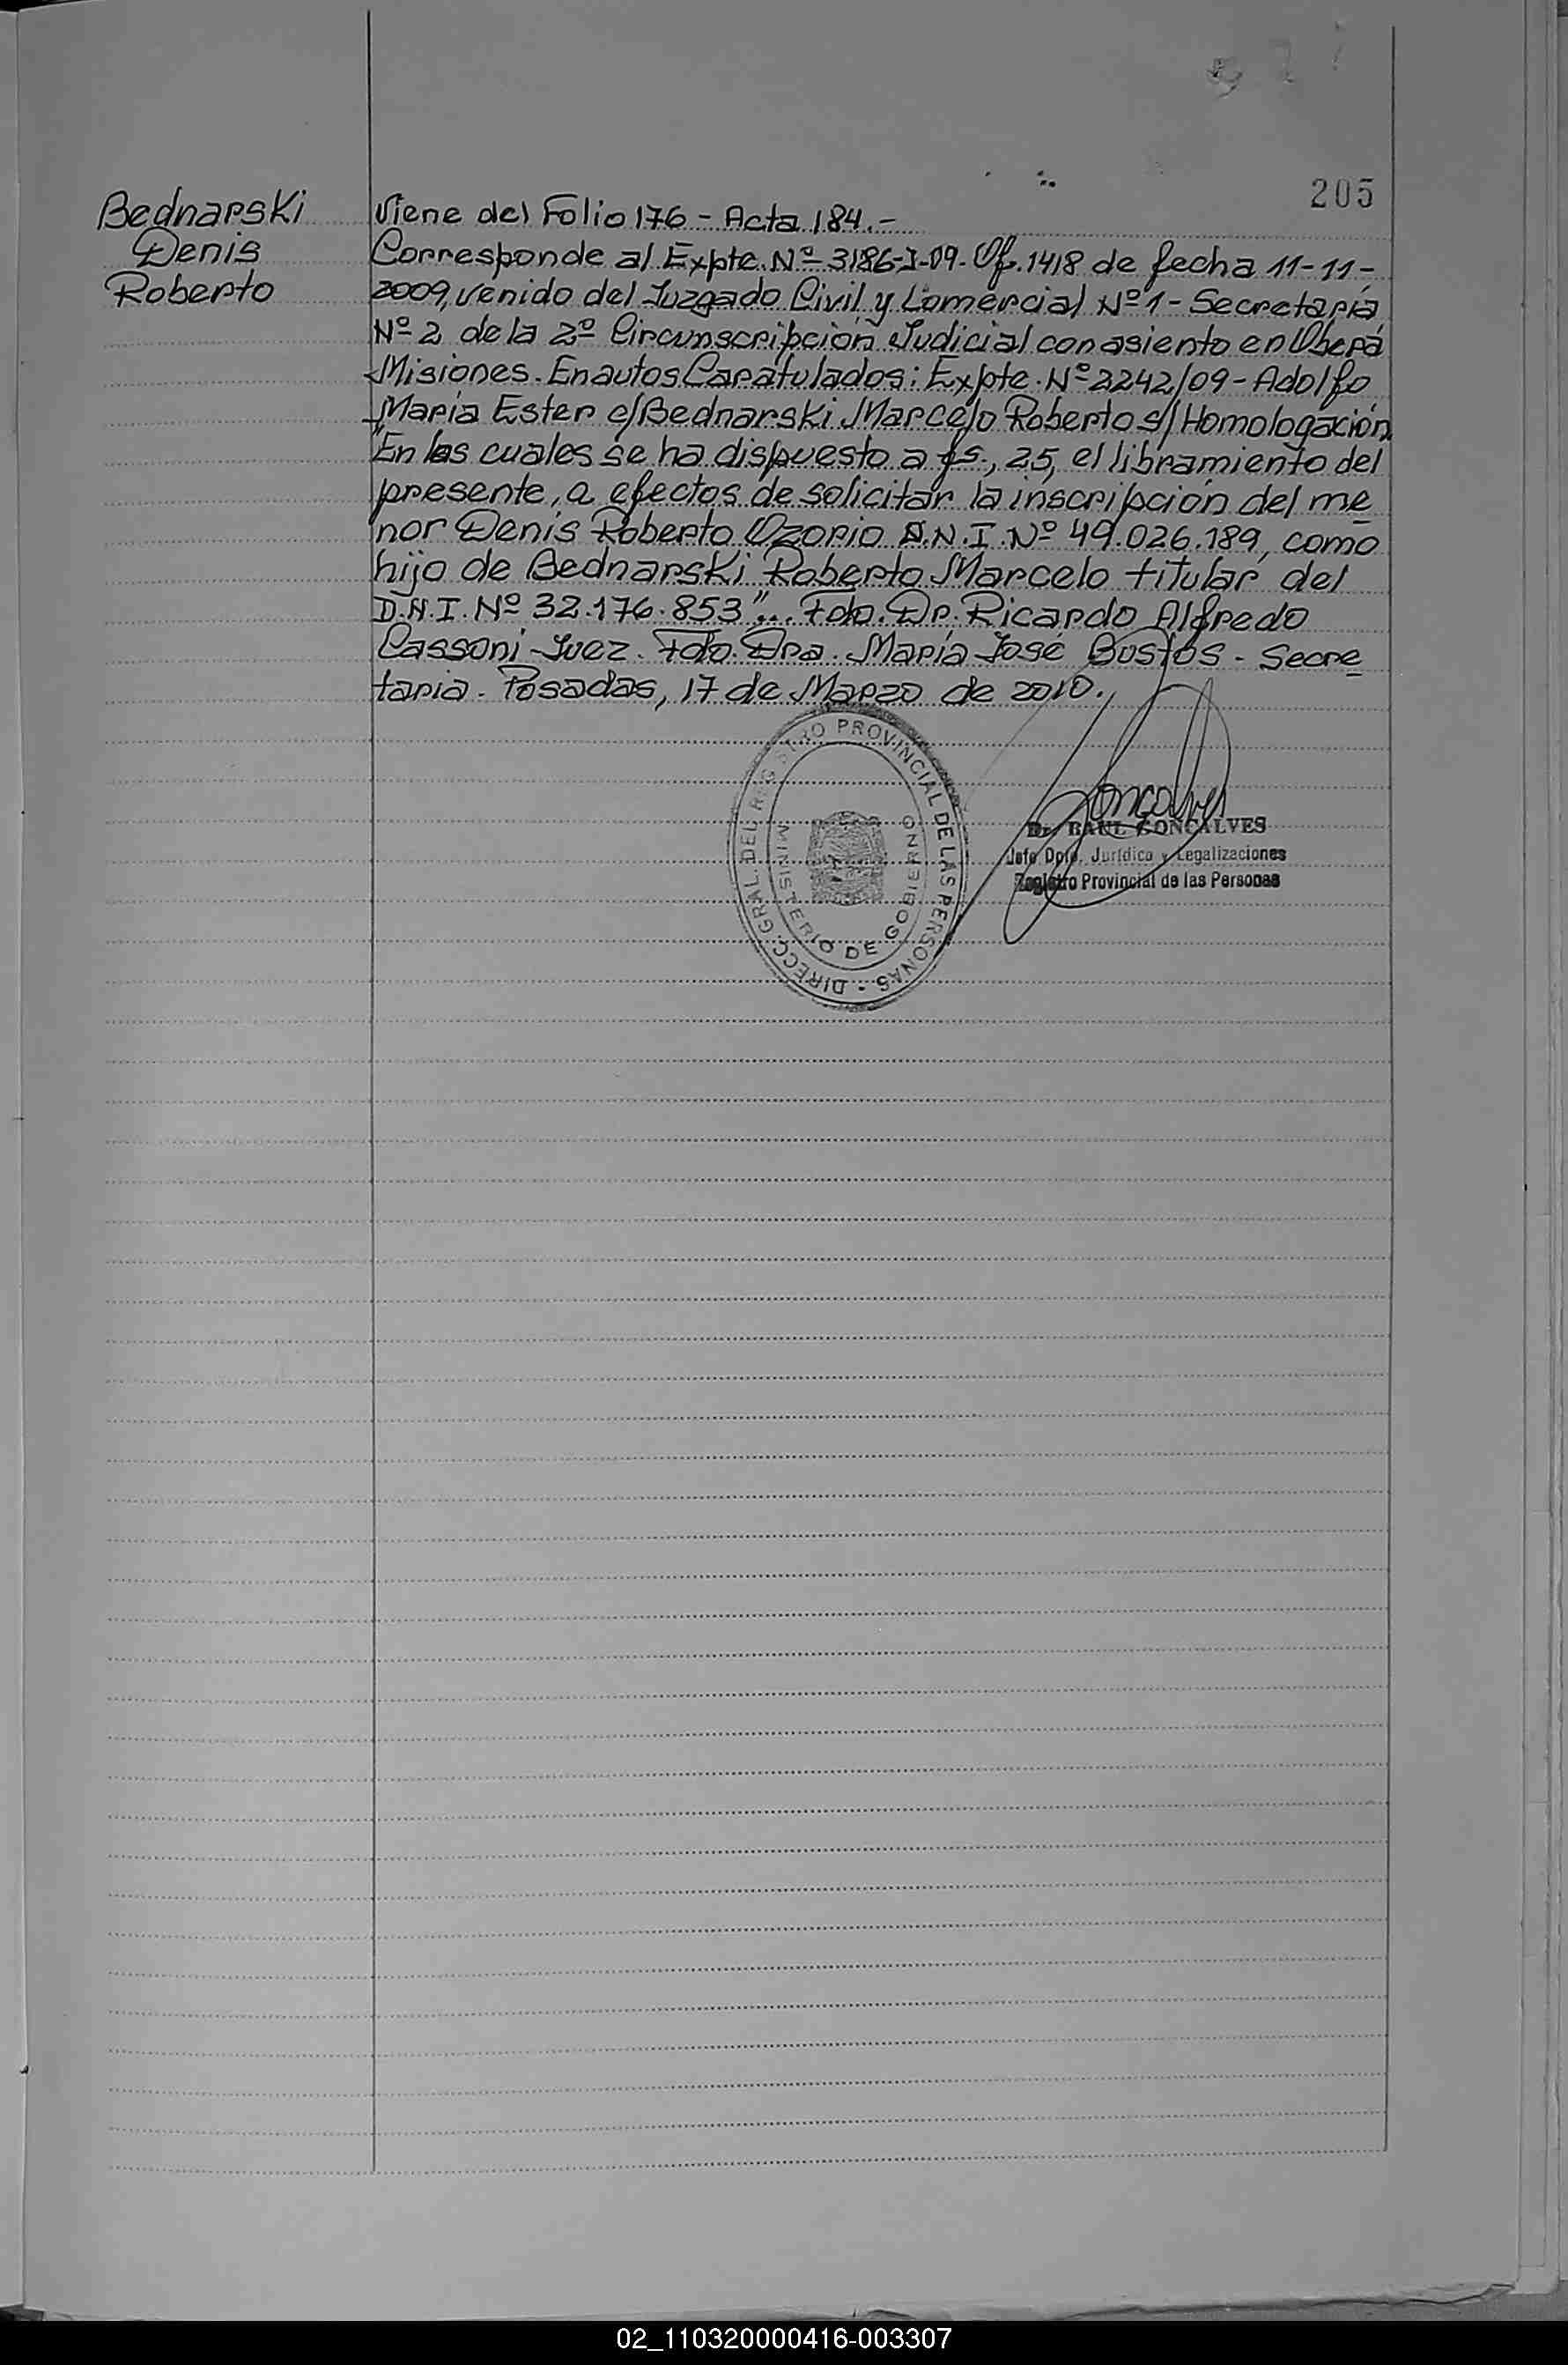 205
Bednarski
Denis
Roberto
Viene del Folio 176 - Acta 184.-
Corresponde al Expte. Nº 3186-J-09. Of. 1418 de fecha 11-11-
2009, venido del Juzgado Civil y Comercial Nº 1 - Secretaría
Nº 2 de la 2º Circunscripción Judicial con asiento en Oberá
Misiones. En autos Caratulados: Expte. Nº 2242/09 - Adolfo
María Ester c/Bednarski Marcelo Roberto s/Homologación
"En las cuales se ha dispuesto a fs., 25, el libramiento del
presente, a efectos de solicitar la inscripción del me
nor Denis Roberto Ozorio D.N.I. Nº 49.026.189, como
hijo de Bednarski Roberto Marcelo titular del
D.N.I. Nº 32.176.853"... Fdo. Dr. Ricardo Alfredo
Cassoni - Juez. Fdo. Dra. María José Bustos - Secre
taria. Posadas, 17 de Marzo de 2010.
DIRECC. GRAL. DEL REGISTRO PROVINCIAL DE LAS PERSONAS -
MINISTERIO DE GOBIERNO
Goncalves
Dr. RAUL GONCALVES
Jefe Dpto. Jurídico y Legalizaciones
Registro Provincial de las Personas
02_110320000416-003307